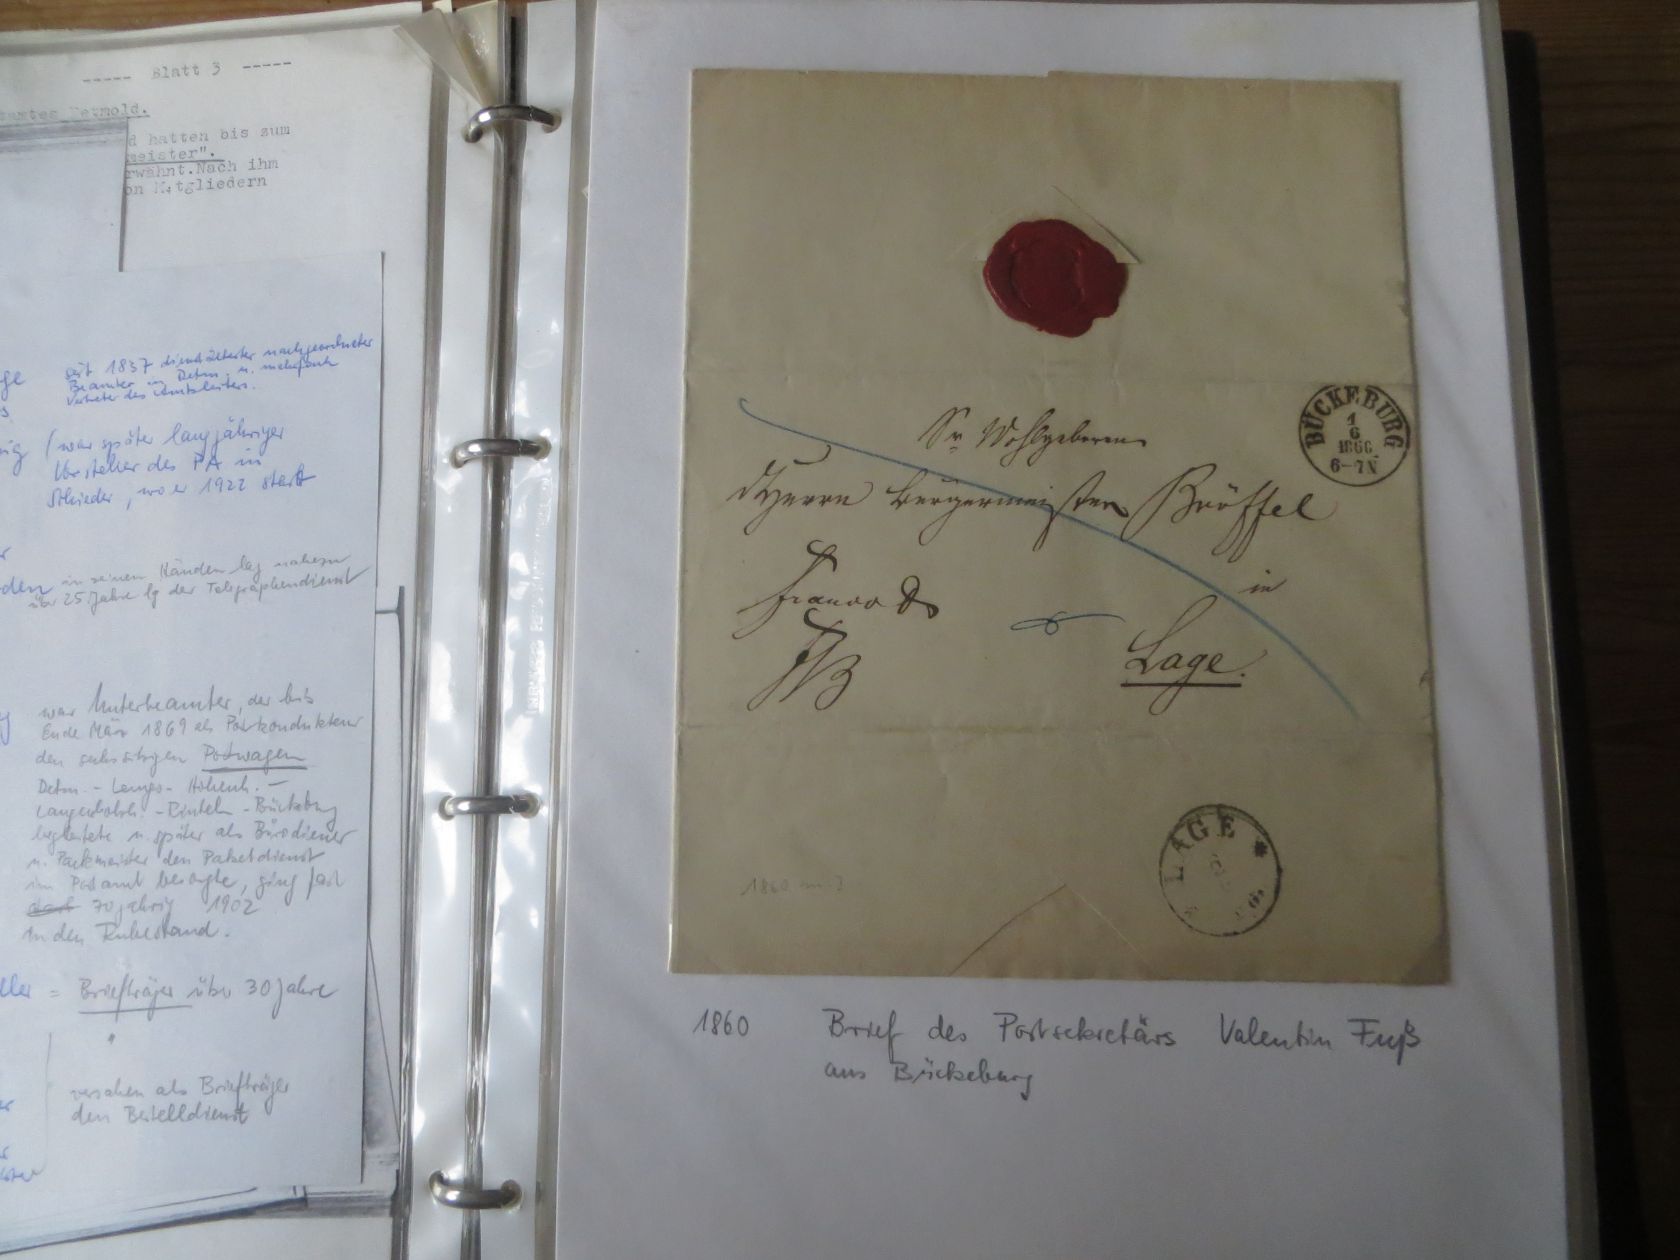 ----- Blatt 3 -----
amtes Detmold.
d hatten bis zum
meister".
rwähnt.Nach ihm
on Mitgliedern
ge
seit 1837 dienstältester nachgeordneter
Beamter in Detm. u. mehrfach
Vertreter des Amtsleiters.
ig (war später langjähriger
Vorsteher des PA in
Schieder, wo er 1922 starb
den in seinen Händen lag nahezu
über 25 Jahre lg der Telegraphendienst
war Unterbeamter, der bis
Ende März 1869 als Postkondukteur
den sechssitzigen Postwagen
Detm. - Lemgo - Hohenh. -
Langenholzh. - Rinteln - Bückebg
begleitete u. später als Bürodiener
u. Packmeister den Paketdienst
im Postamt besorgte, ging fast
70 jährig 1902
in den Ruhestand.
ller = Briefträger über 30 Jahre
versahen als Briefträger
den Bestelldienst
BÜCKEBURG
1
6
186
6-7N
Sr Wohlgeboren
Herrn Bürgermeister
in
Franco
Lage.
LAGE *
1860
1860 Brief des Postsekretärs Valentin Fuß
aus Bückeburg